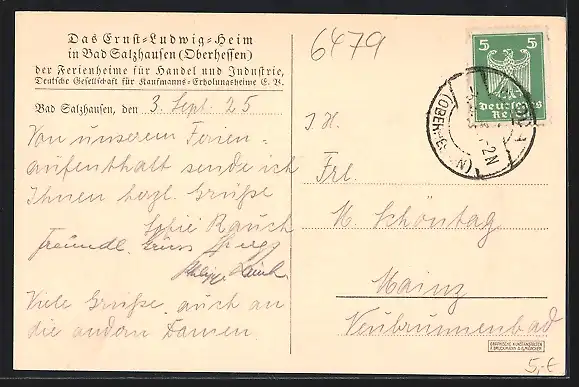 Das Ernst-Ludwig-Heim
in Bad Salzhausen (Oberhessen)
der Ferienheime für Handel und Industrie,
Deutsche Gesellschaft für Kaufmanns-Erholungsheime E. V.
Bad Salzhausen, den 3. Sept. 25
Von unserem Ferien-
aufenthalt sende ich
Ihnen herzl. Grüße
Sofie Rauch
Freundl. Gruss
Viele Grüße auch an
die andern Damen.
6479
5 5
Deutsches
Reich
(OBER-
J. H.
Frl.
M. Schöntag
Mainz
Neubrunnenbad
5,-€